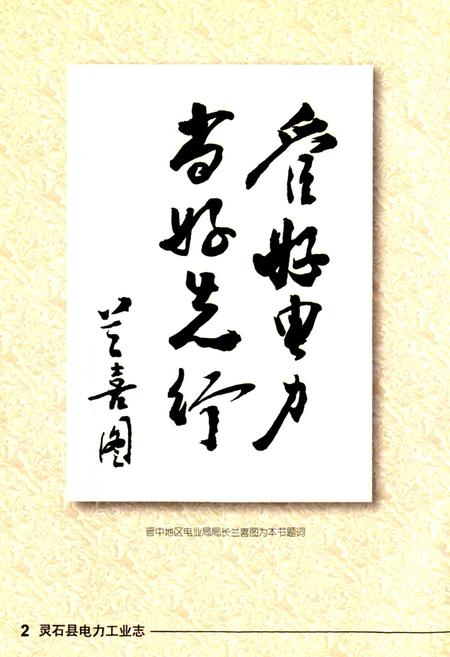 管好电力
当好先行
兰喜图
晋中地区电业局局长兰喜图为本书题词
2 灵石县电力工业志